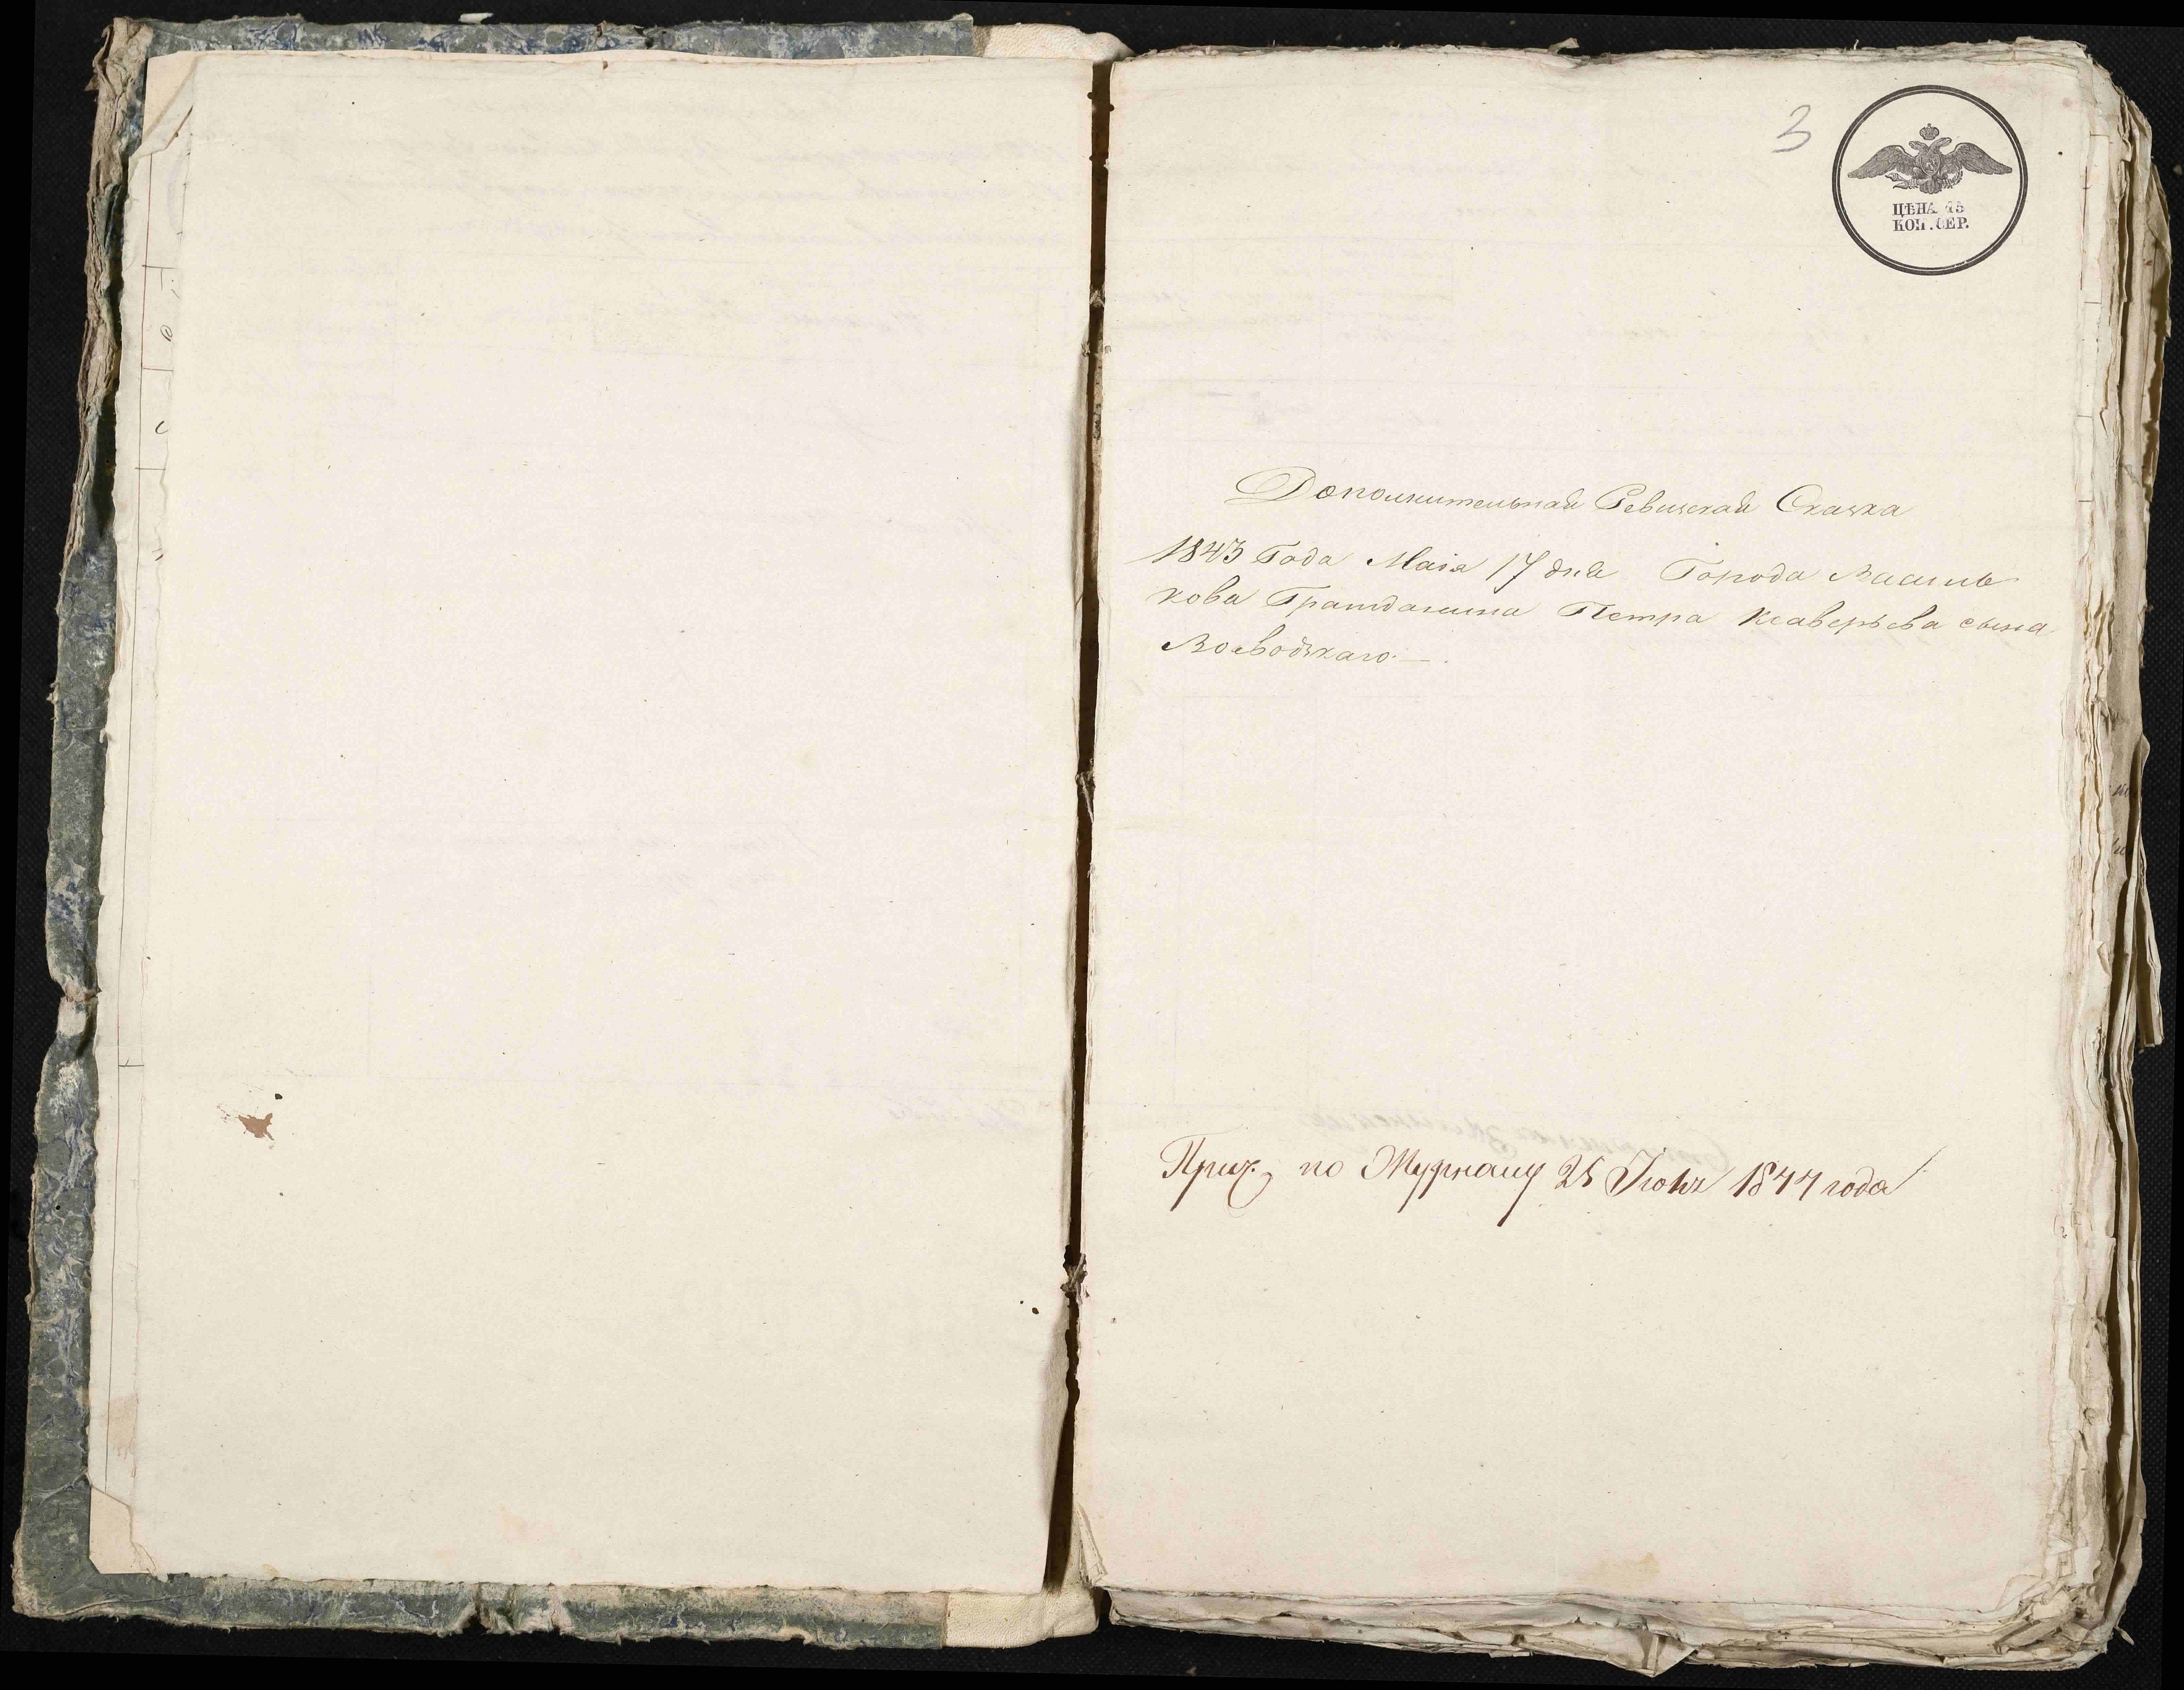 3
ЦѢНА 45
КОП. СЕР.
Дополнительная Ревизская Сказка
1843 Года Маія 17 дня Города Василь
кова Гражданина Петра Ксаверьева сына
Воеводзкаго. —
по Журналу 25 1844 года